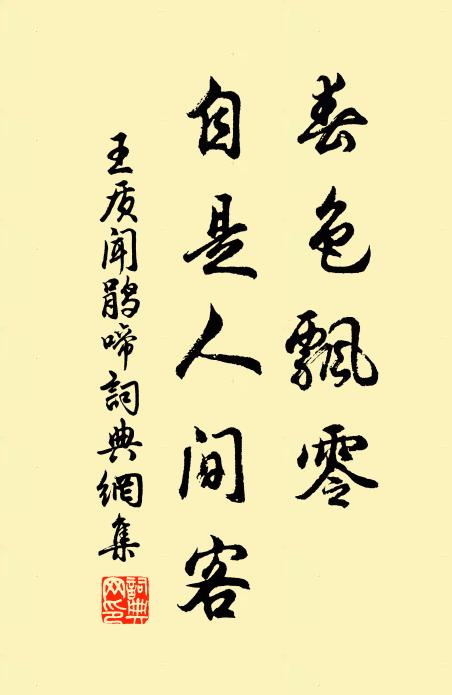 春色飘零
自是人间客
王质闻鹃啼詞典網集
詞典网印